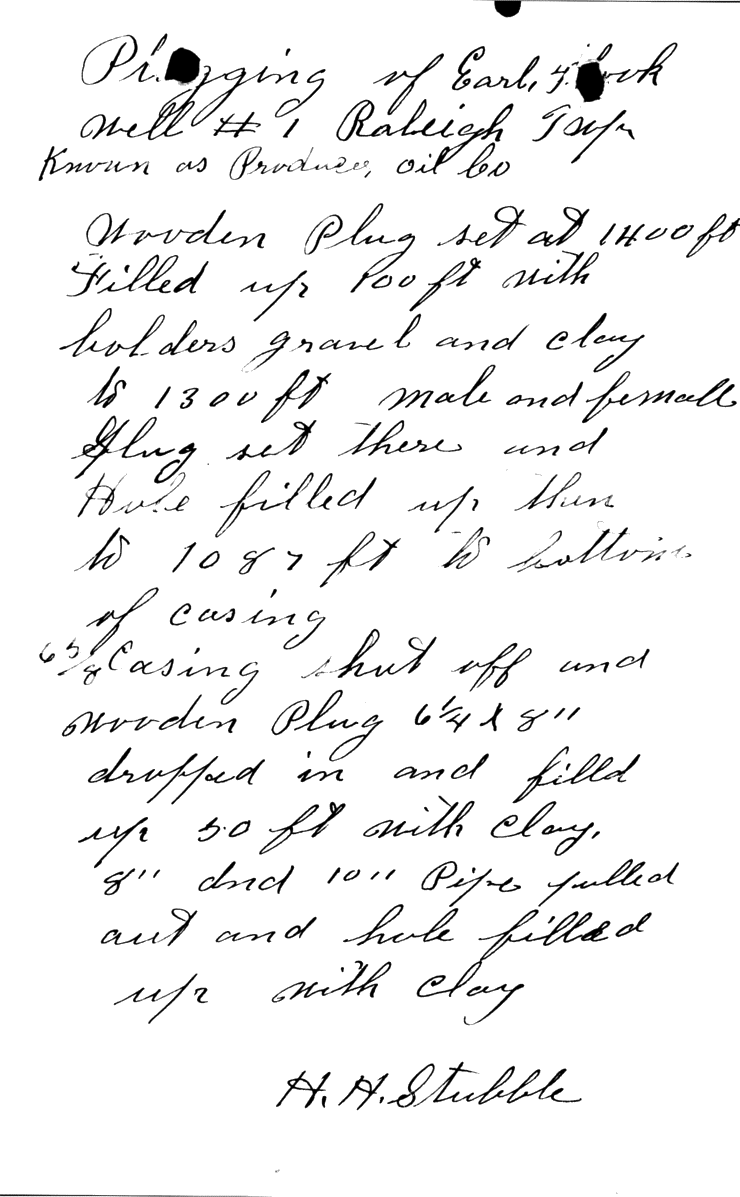 Plugging of Earl,
well # 1 Raleigh Twp
Known as Produce, oil Co
Wooden Plug set at 1400 ft
Filled up 100 ft with
bolders gravel and clay
to 1300 ft male and femall
Plug set there and
Hole filled up then
to 1087 ft to bottom
of casing
6 5/8 Casing shut off and
wooden Plug 6 1/4 x 8"
dropped in and filld
up 50 ft with clay,
8" and 10" Pipe pulled
out and hole filled
up with clay
H. H. Stubble